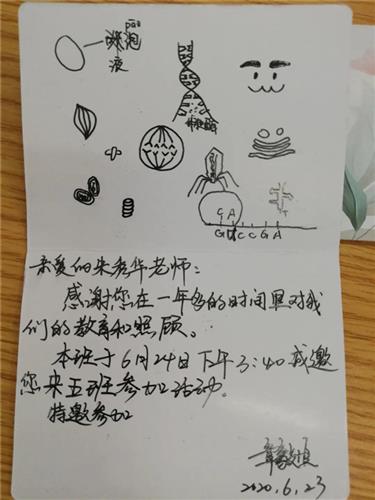 液
C A
G U C C G A
亲爱的朱华老师:
感谢您在一年多的时间里对我
们的教育和照顾。
本班于6月24日下午3:40诚邀
您来五班参加活动。
特邀参加
2020.6.23